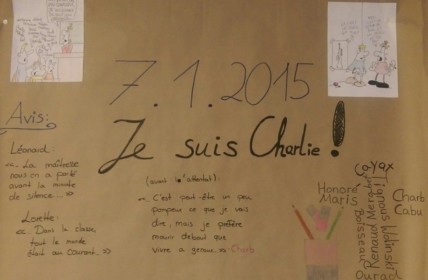 7.1.2015
Je suis Charlie!
Avis:
Léonard:
«. La maîtresse
nous en a parlé
avant la minute
de silence... »
Lorette:
«. Dans la classe,
tout le monde
était au courant. »
(avant l'attentat):
«. C'est peut-être un peu
pompeux ce que je vais
dire, mais je préfère
mourir debout que
vivre à genoux. »: Charb
Cayat
Honoré
Maris
Charb
Cabu
Tignous
Wolinski
Renaud
Merabet
Boisseau
Ourad